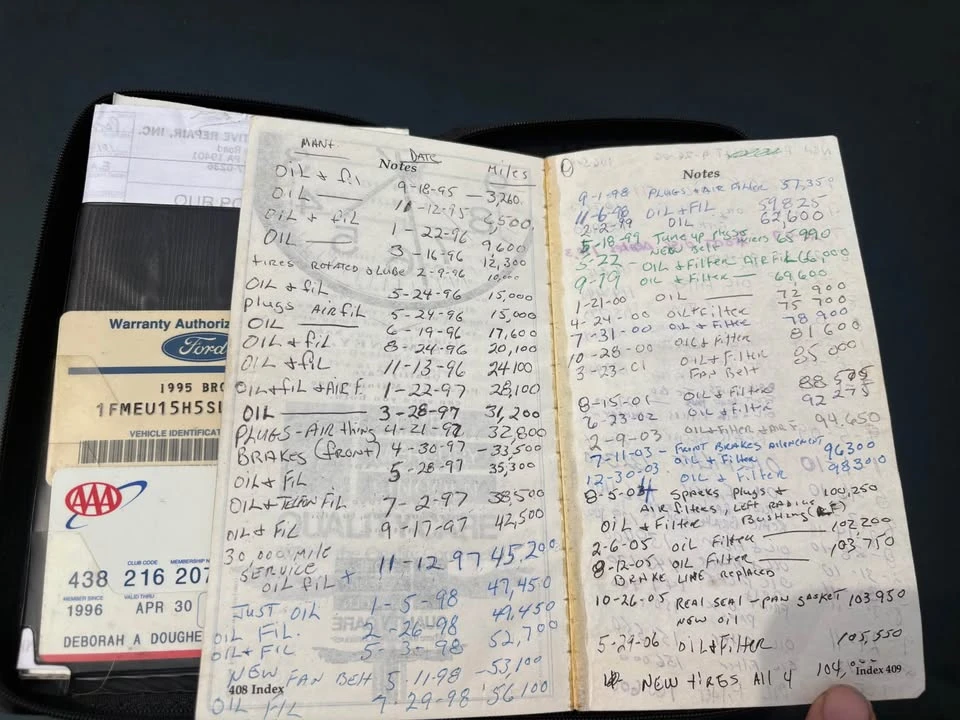 TIVE REPAIR, INC.
Road
PA 19401
OUR PO
Warranty Authoriz
Ford
1995 BRO
1FMEU15H5SL
VEHICLE IDENTIFICAT
AAA
CLUB CODE MEMBERSHIP N
438 216 207
MEMBER SINCE VALID THRU
1996 APR 30
DEBORAH A DOUGHE
MANT. DATE Miles
Notes
OIL & fil 9-18-95 — 3,260
OIL — 11-12-95 6,500
OIL & fil 1-22-96 9,600
OIL — 3-16-96 12,300
tires ROTATED & Lube 2-9-96 10,000
OIL & fil 5-24-96 15,000
plugs Air fil 5-24-96 15,000
OIL — 6-19-96 17,600
OIL & fil 8-24-96 20,100
OIL & fil 11-13-96 24100
OIL & fil & AIR F. 1-22-97 28,100
OIL — 3-28-97 31,200
PLUGS - AIR thing 4-21-97 32,800
BRAKES (front) 4-30-97 - 33,500
OIL & FIL 5-28-97 35,300
OIL & Teflon FIL 7-2-97 38,500
OIL & FIL 9-17-97 42,500
30,000 MILE
SERVICE
OIL FIL + 11-12-97 45,200
JUST OIL 1-5-98 47,450
OIL FIL. 2-26-98 49,450
OIL & FIL 5-3-98 52,700
NEW FAN BELT 5-11-98 - 53,100
OIL FIL 7-29-98 56100
408 Index
Notes
9-1-98 PLUGS & AIR Filter 57,350
11-6-98 OIL & FIL 59825
2-2-99 OIL 62,600
5-18-99 Tune up plugs
NEW Belt 65990
5-22 - OIL & Filter AIR FIL
9-79 OIL & Filter — 69600
1-21-00 OIL — 72900
4-24-00 OIL & Filter 75700
7-31-00 OIL & Filter 78900
10-28-00 OIL & Filter 81600
3-23-01 OIL & Filter 85000
FAN Belt
8-15-01 OIL & Filter 88505
6-23-02 OIL & Filter 92275
2-9-03 OIL & Filter & AIR F. 94,650
7-11-03 - FRONT BRAKES ALIGNEMENT
OIL & Filter 96300
12-30-03 OIL & Filter 98300
8-5-04 Sparks plugs &
AIR filters, LEFT RADIUS 100,250
OIL & Filter Bushing
2-6-05 OIL Filter — 102200
8-12-05 OIL Filter — 103750
BRAKE LINE REPLACED
10-26-05 REAL SEAL - PAN GASKET 103950
NEW OIL
5-29-06 OIL & Filter 105,550
NEW TIRES All 4 104,
Index 409